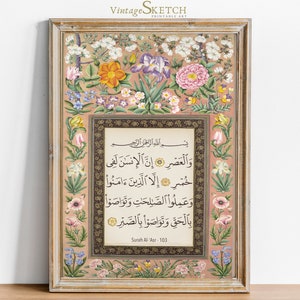 VintageSKETCH
PRINTABLE ART
بِسْمِ اللَّهِ الرَّحْمَٰنِ الرَّحِيمِ
وَالْعَصْرِ ۝ إِنَّ الْإِنسَٰنَ لَفِى
خُسْرٍ ۝ إِلَّا الَّذِينَ ءَامَنُوا
وَعَمِلُوا الصَّٰلِحَٰتِ وَتَوَاصَوْا
بِالْحَقِّ وَتَوَاصَوْا بِالصَّبْرِ ۝
Surah Al-'Asr - 103